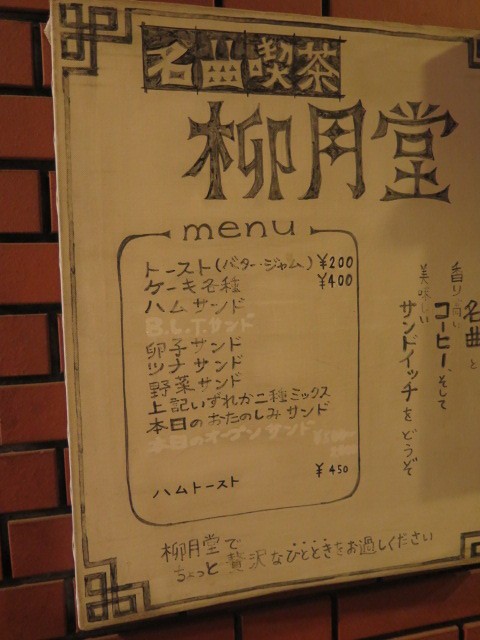 名曲喫茶
柳月堂
menu
トースト(バター・ジャム) ¥200
ケーキ各種 ¥400
ハムサンド
B.L.T.サンド
卵子サンド
ツナサンド
野菜サンド
上記いずれか二種ミックス
本日のおたのしみサンド
本日のオープンサンド
ハムトースト ¥450
名曲と
香り高い
コーヒー、そして
美味しい
サンドイッチをどうぞ
柳月堂で
ちょっと贅沢なひとときをお過しください